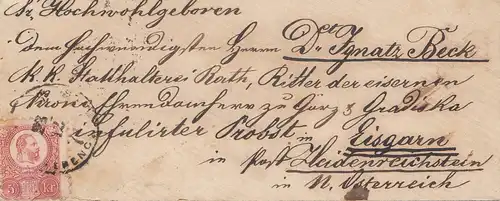 Sr Hochwohlgeboren
dem Hochwürdigsten Herrn Dr. Ignatz Beck
k. k. Statthalterei Rath, Ritter der eisernen
Krone, Ehrendomherr zu Görz & Gradiska
infulirter Probst in Eisgarn
in Post Heidenreichstein
in N. Österreich
5